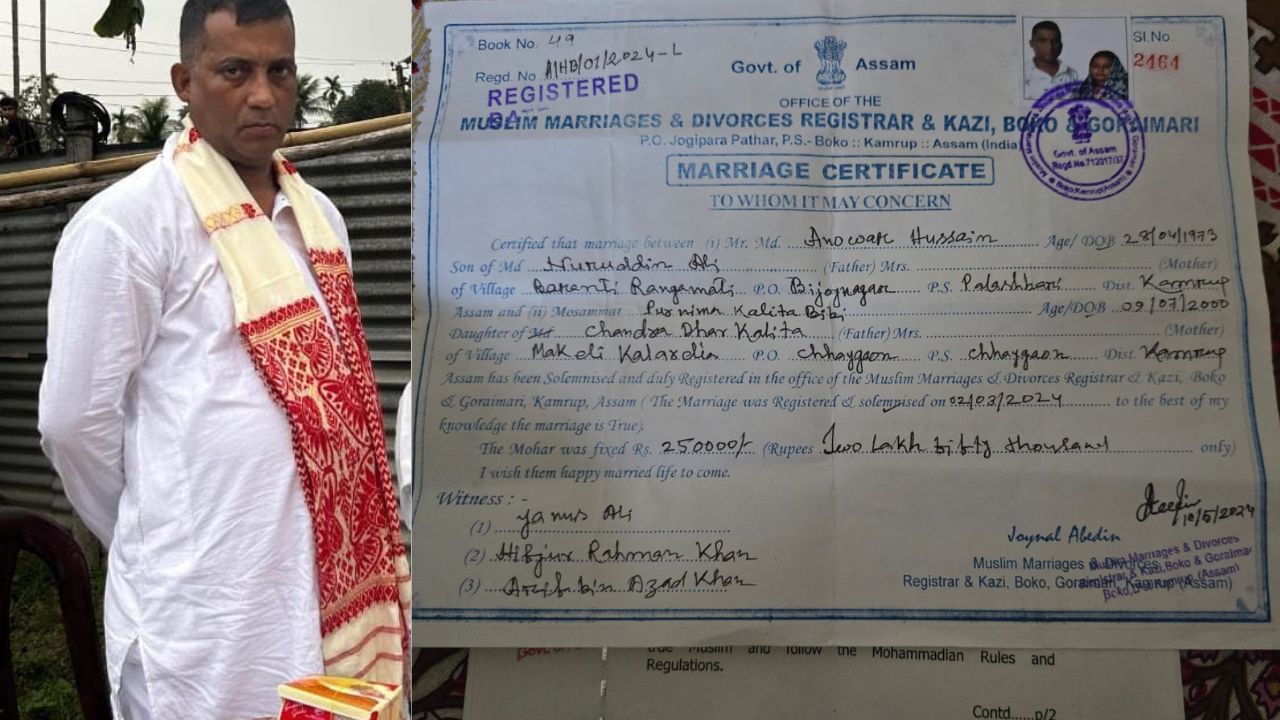 Book No. 49
Regd. No A/HB/01/2024-L
REGISTERED
Govt. of Assam
Sl.No.
2464
OFFICE OF THE
MUSLIM MARRIAGES & DIVORCES REGISTRAR & KAZI, BOKO & GORAIMARI
P.O. Jogipara Pathar, P.S.- Boko :: Kamrup :: Assam (India)
Govt. of Assam
Regd.No.712017/37
Boko,Kamrup(Assam)
MARRIAGE CERTIFICATE
TO WHOM IT MAY CONCERN
Certified that marriage between (i) Mr. Md. Anowar Hussain Age/ DOB 28/04/1973
Son of Md Nuruddin Ali (Father) Mrs. (Mother)
of Village Baranti Rangamati P.O. Bijoynagar P.S. Palashbari Dist. Kamrup
Assam and (ii) Mosammat Purnima Kalita Bibi Age/DOB 09/07/2000
Daughter of Md Chandra Dhar Kalita (Father) Mrs. (Mother)
of Village Makeli Kalardia P.O. Chhaygaon P.S. Chhaygaon Dist. Kamrup
Assam has been Solemnised and duly Registered in the office of the Muslim Marriages & Divorces Registrar & Kazi, Boko
& Goraimari, Kamrup, Assam ( The Marriage was Registered & solempised on 02/03/2024 to the best of my
knowledge the marriage is True).
The Mohar was fixed Rs. 250000/- (Rupees Two Lakh fifty thousand only)
I wish them happy married life to come.
Witness : -
(1) Yanus Ali
(2) Hifjur Rahman Khan
(3) Arif bin Azad Khan
10/5/2024
Joynal Abedin
Muslim Marriages & Divorces
Registrar & Kazi, Boko, Goraimari, Kamrup (Assam)
Muslim Marriages & Divorces
Registrar & Kazi,Boko & Goraimari
Boko,Dist.Kamrup (Assam)
true Muslim and follow the Mohammadian Rules and
Regulations.
Contd......p/2